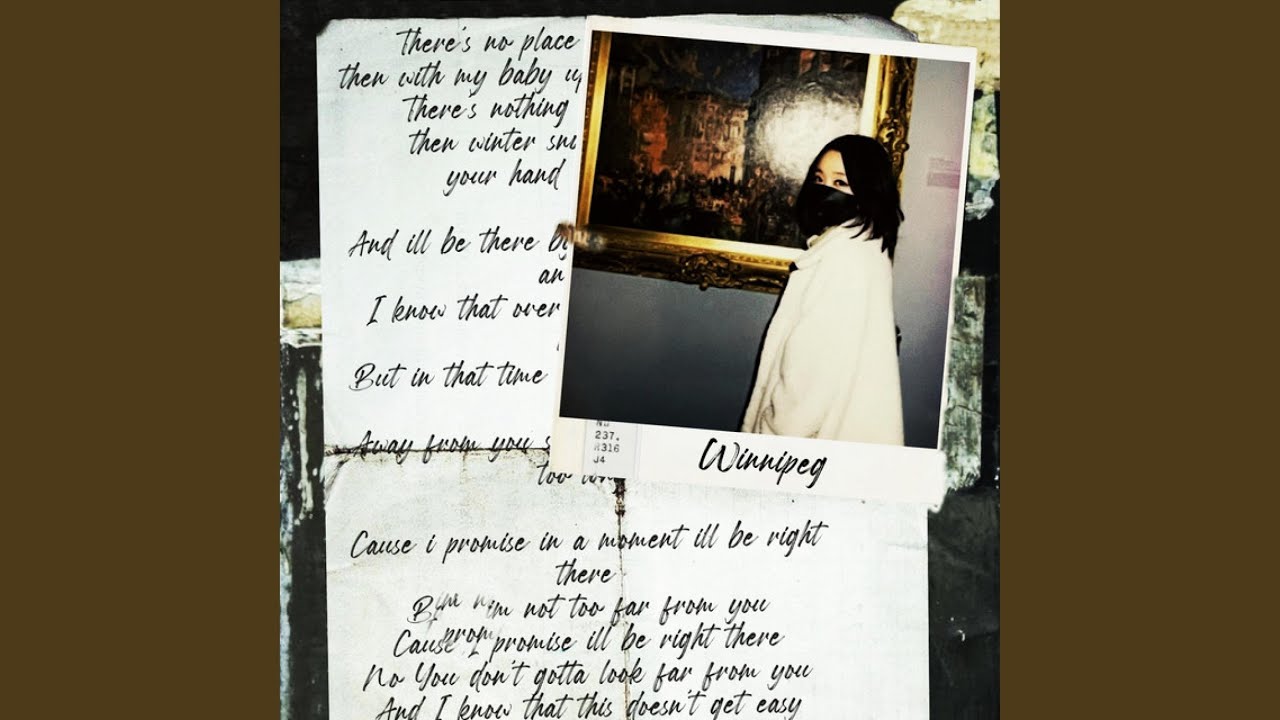 There's no place
then with my baby up
There's nothing
then winter sno
your hand
And ill be there by
an
I know that over
But in that time
Away from you s
too lon
237.
J4
Winnipeg
Cause i promise in a moment ill be right
there
im not too far from you
prom
Cause I promise ill be right there
No You don't gotta look far from you
And I know that this doesn't get easy